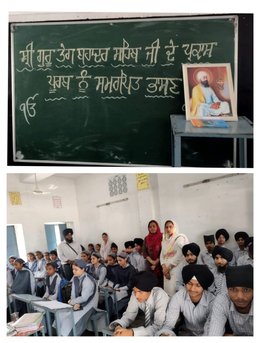 ਸ੍ਰੀ ਗੁਰੂ ਤੇਗ ਬਹਾਦਰ ਸਾਹਿਬ ਜੀ ਦੇ ਪ੍ਰਕਾਸ਼
ਪੁਰਬ ਨੂੰ ਸਮਰਪਿਤ ਭਾਸ਼ਣ
ੴ